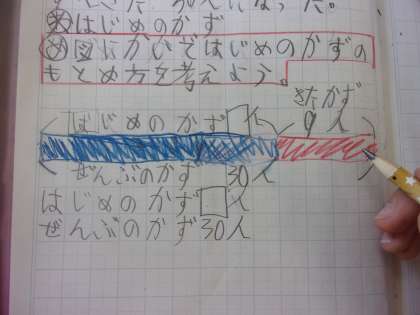 ㋲はじめのかず
㋱図にかいてはじめのかずの
もとめ方を考えよう。
きたかず
はじめのかず□人 9人
ぜんぶのかず 30人
はじめのかず□人
ぜんぶのかず30人